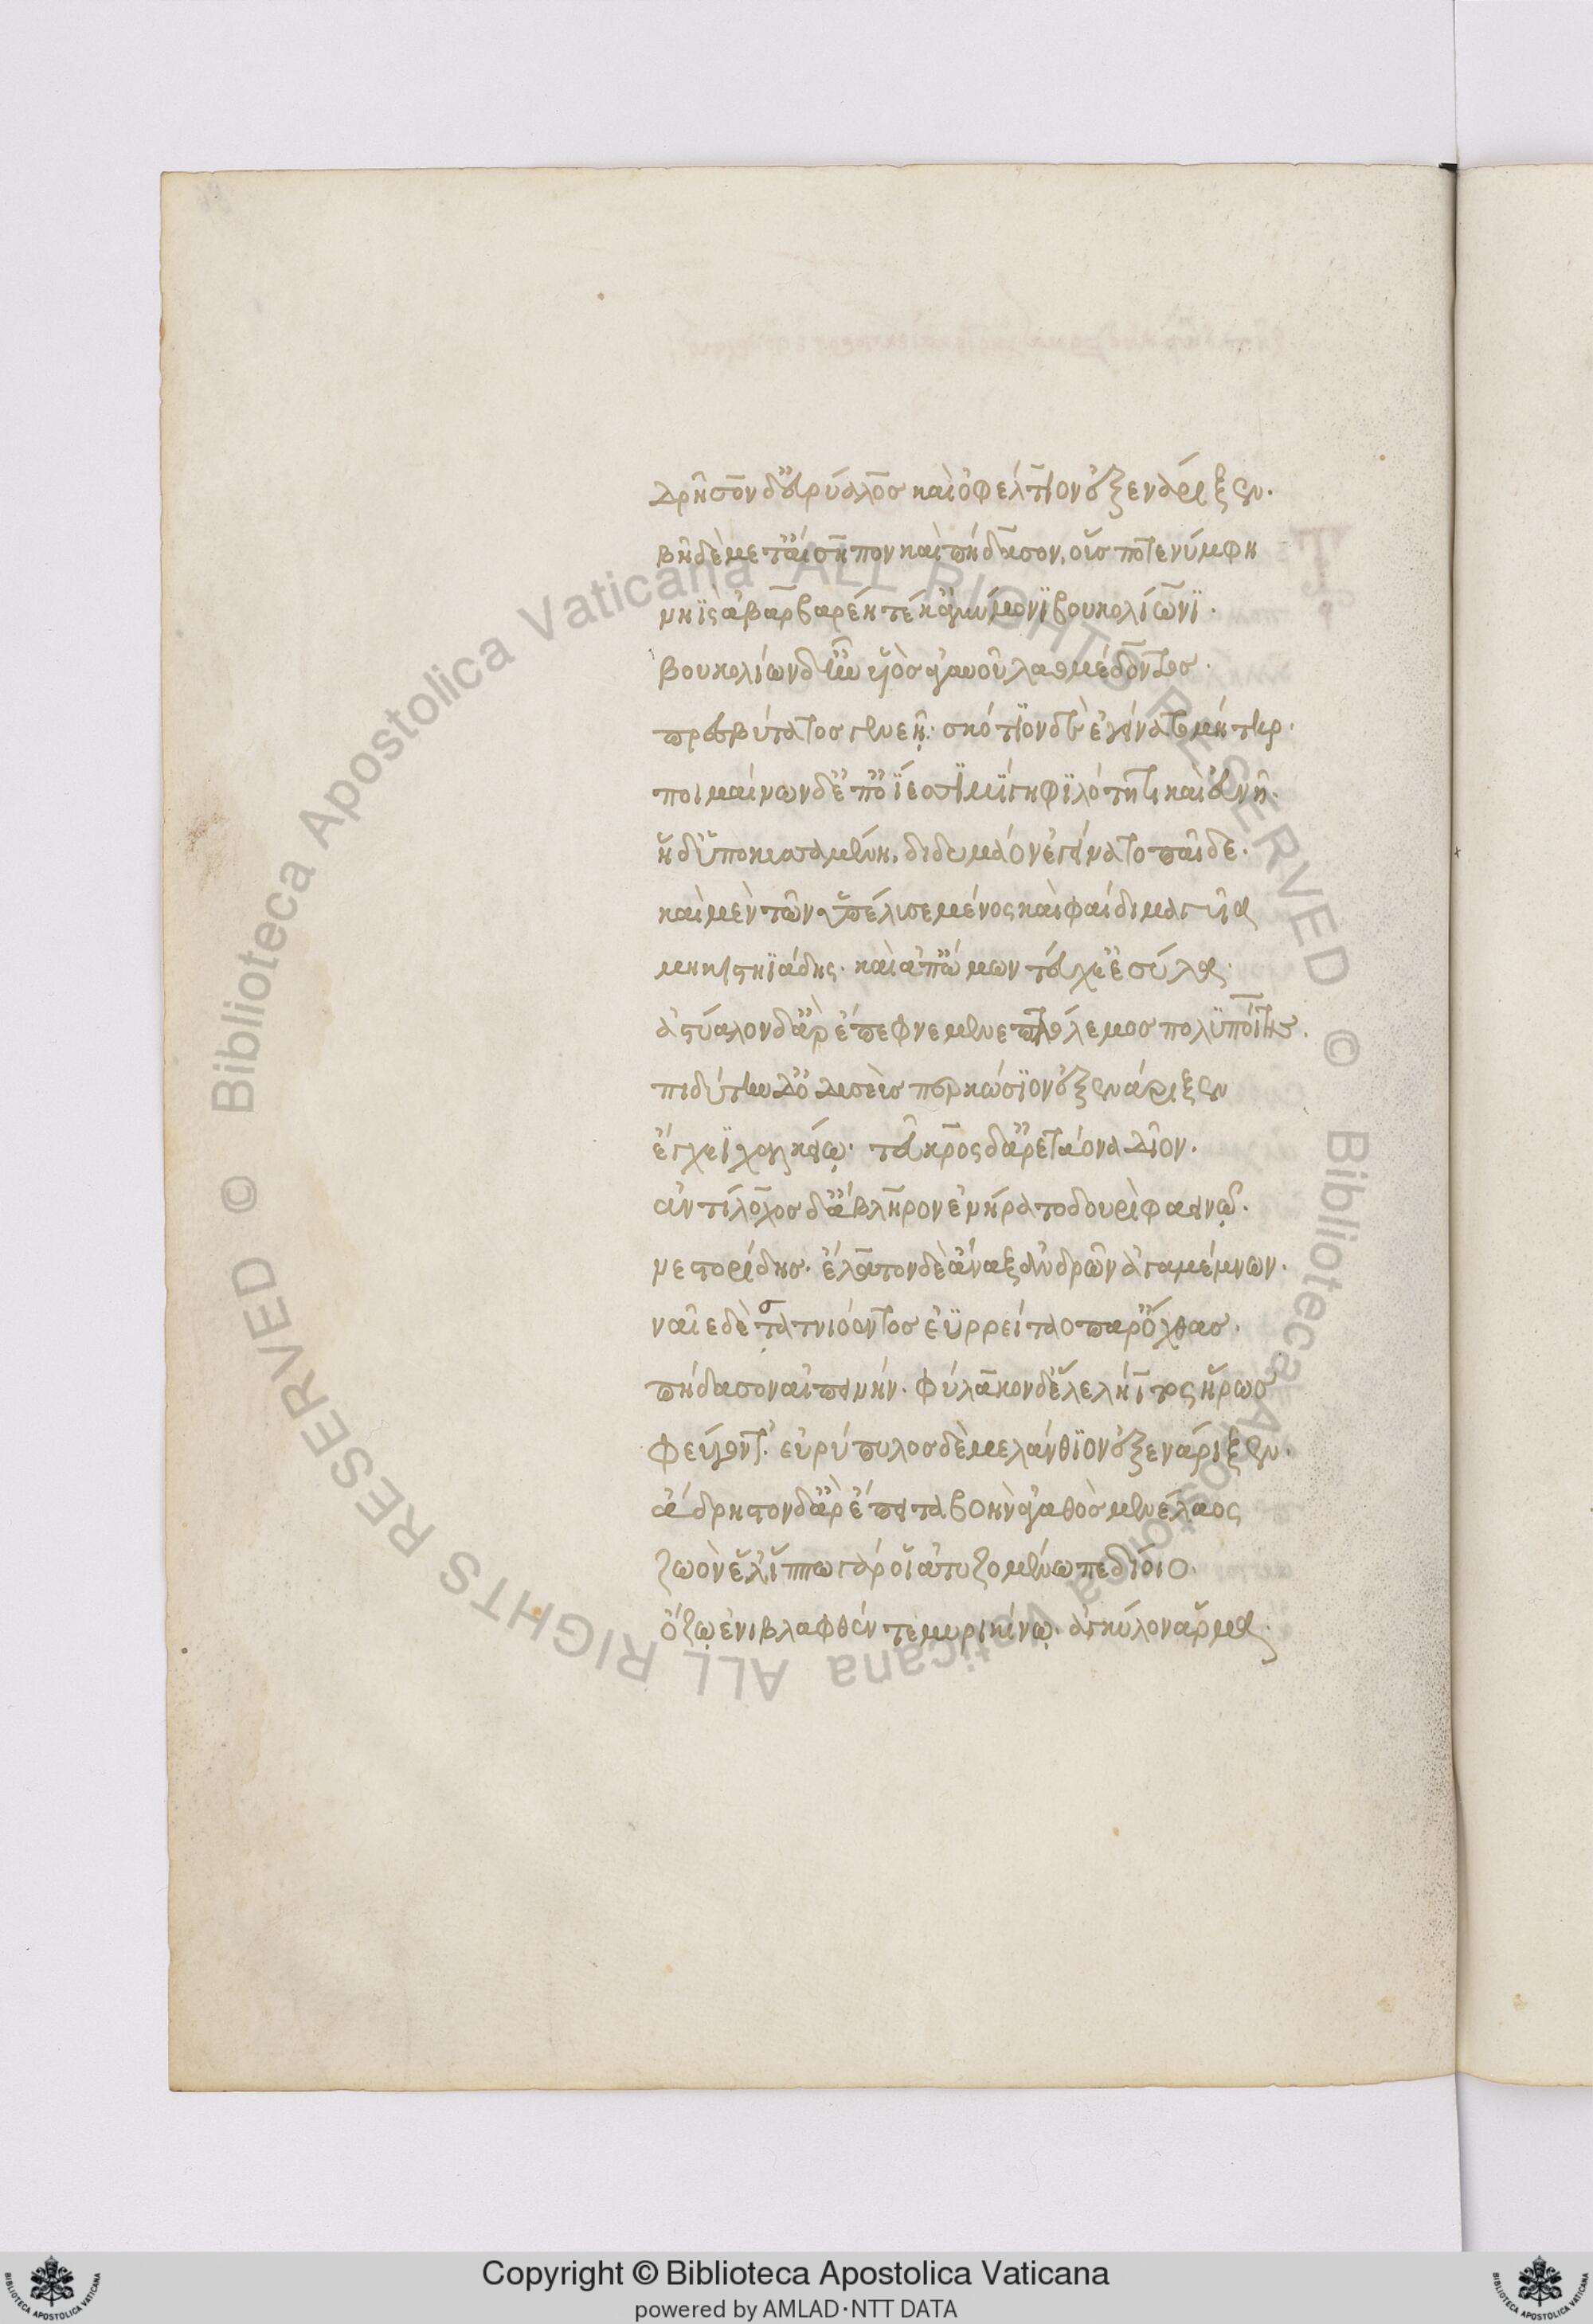 Δρῆσον δ' Εὐρύαλος καὶ ὀφέλτιον ἐξενάριξεν.
βῆ δὲ μετ' αἴσηπον καὶ πήδασον, οὕς ποτε νύμφη
νηῒς ἀβαρβαρέη τέκ' ἀμύμονϊ βουκολίωνϊ.
Βουκολίων δ' ἦν υἱὸς ἀγαυοῦ λαομέδοντος.
πρεσβύτατος γενεῇ· σκότϊον δέ ἑ γείνατο μήτηρ.
ποιμαίνων δ' ἐπ' ὄϊεσσϊ μίγη φϊλότητι καὶ εὐνῆ.
ἡ δ' ὑποκυσαμένη, διδυμάονε γείνατο παῖδε.
καὶ μὲν τῶν ὑπέλυσε μένος καὶ φαίδιμα γυῖα
μηκιστηϊάδης· καὶ ἀπ' ὤμων τεύχε' ἐσύλα.
ἀστύαλον δ' ἄρ' ἔπεφνε μενεπτόλεμος πολϋποίτης.
πιδύτην δ' ὀδυσεὺς περκώσϊον ἐξενάριξεν
ἔγχεϊ χαλκείῳ· τεῦκρος δ' ἀρετάονα δῖον.
ἀντίλοχος δ' ἄβληρον ἐνήρατο δουρὶ φαεινῷ.
νεστορίδης· ἔλατον δὲ ἄναξ ἀνδρῶν ἀγαμέμνων.
ναῖε δὲ σατνιόεντος ἐϋρρείταο παρ' ὄχθας.
πήδασον αἰπεινήν· φύλακον δ' ἕλε λήϊτος ἥρως
φεύγοντ'. εὐρύπυλος δὲ μελάνθϊον ἐξενάριξεν.
ἄδρηστον δ' ἄρ' ἔπειτα βοὴν ἀγαθὸς μενέλαος
ζωὸν ἕλ'· ἵππω γάρ οἱ ἀτυζομένω πεδίοιο.
ὄζῳ ἐνι βλαφθέντε μυρικίνῳ· ἀγκύλον ἅρμα.
Copyright © Biblioteca Apostolica Vaticana
powered by AMLAD·NTT DATA